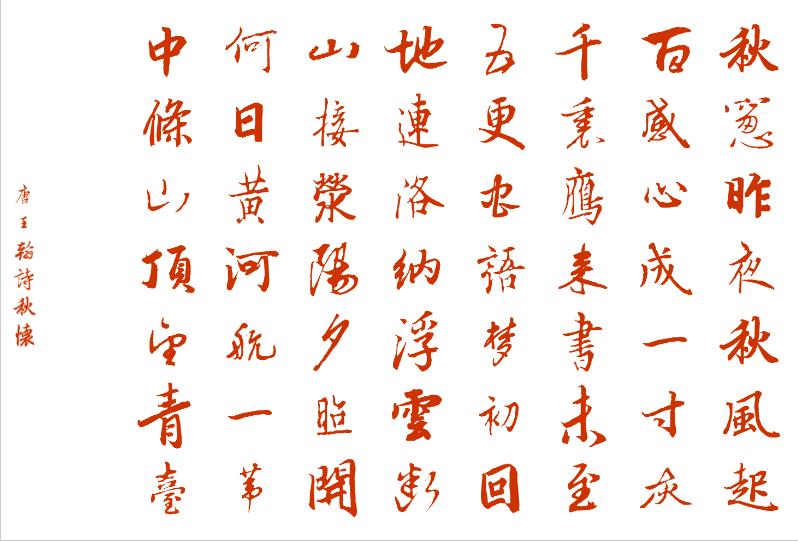 秋窻昨夜秋風起
百感心成一寸灰
千裏鷹来書未至
五更語梦初回
地連洛納浮雲断
山接滎陽夕照開
何日黄河航一苇
中條山頂望青臺
唐王翰詩秋懷